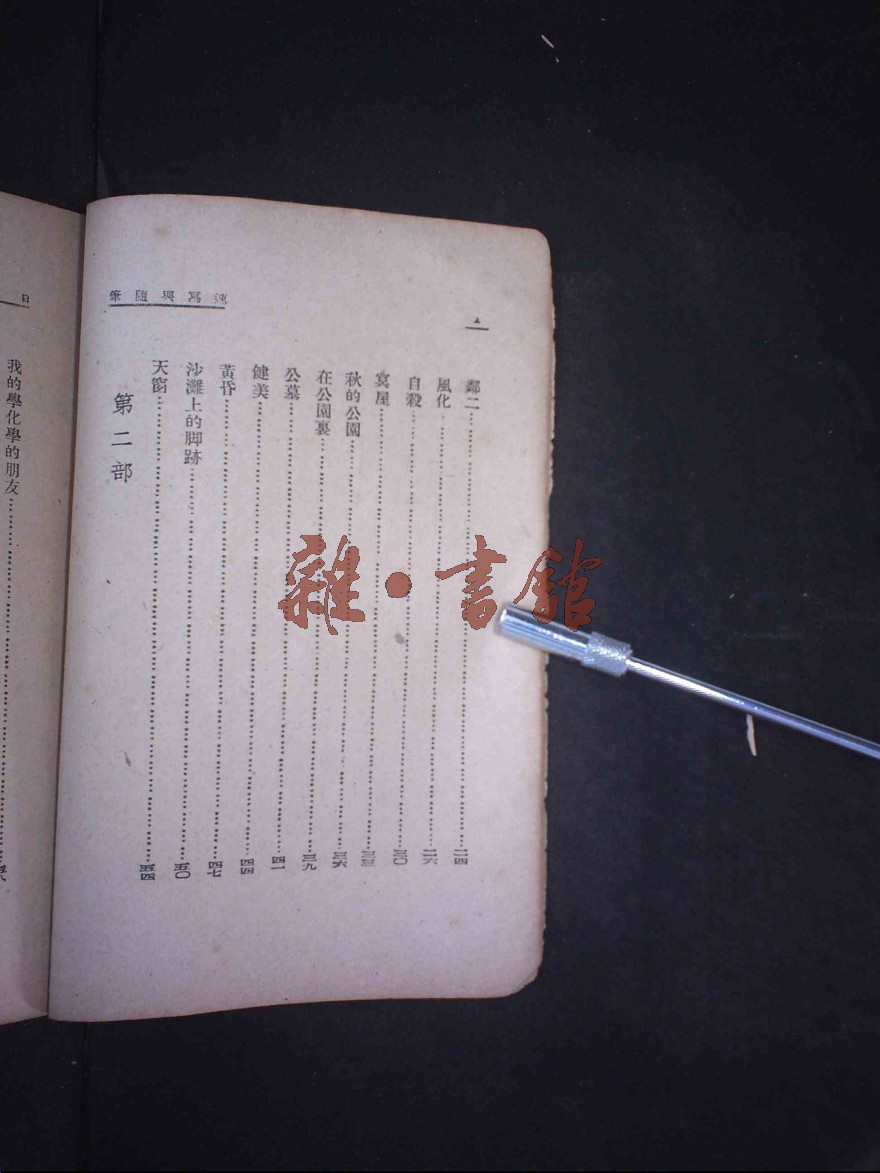 速寫與隨筆
鄰二……二四
風化……二六
自殺……三〇
冥屋……三三
秋的公園……三六
在公園裏……三九
公墓……四一
健美……四四
黃昏……四七
沙灘上的脚跡……五〇
天窗……五四
第二部
目
我的學化學的朋友……
雜·書館